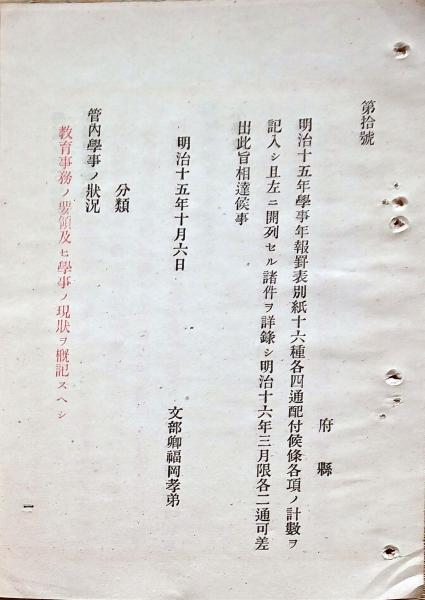 第拾號
府縣
明治十五年學事年報罫表別紙十六種各四通配付候條各項ノ計數ヲ
記入シ且左ニ開列セル諸件ヲ詳錄シ明治十六年三月限各二通可差
出此旨相達候事
明治十五年十月六日
文部卿福岡孝弟
分類
管內學事ノ狀況
教育事務ノ要領及ヒ學事ノ現狀ヲ概記スヘシ
一